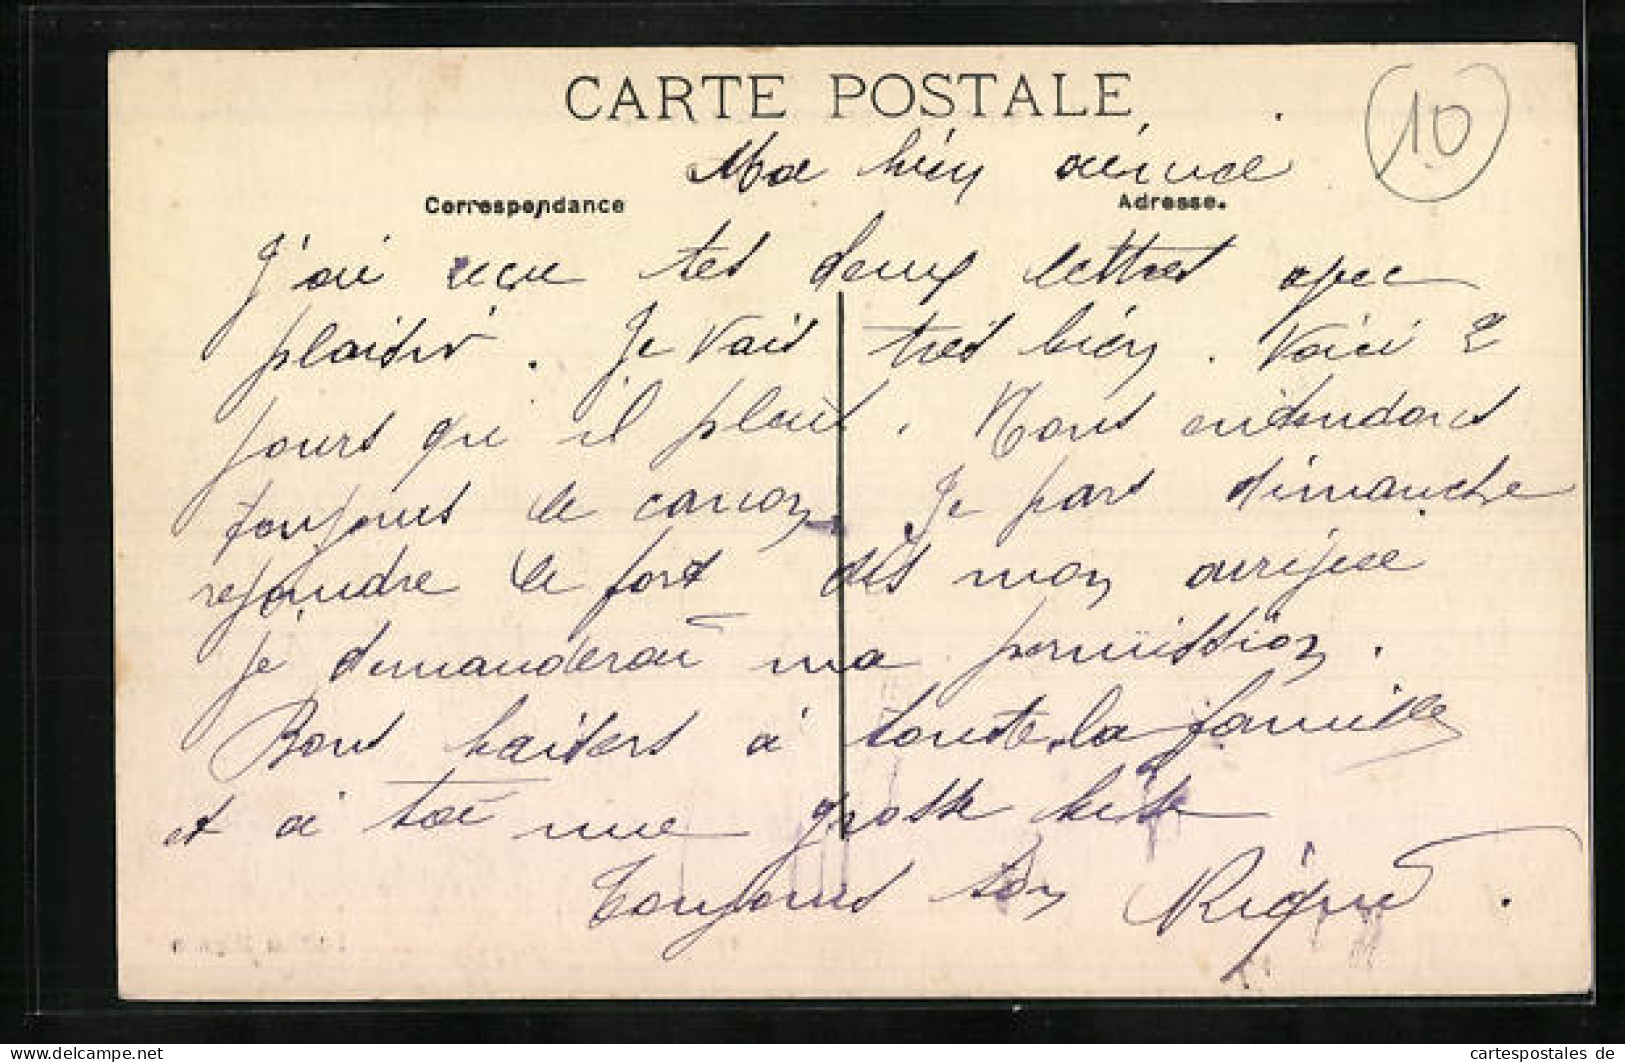 CARTE POSTALE
10
Ma bien aimée
Correspondance
Adresse.
J'ai reçu tes deux lettres avec
plaisir. Je vais très bien. Voici 2
jours qu'il pleut. Nous entendons
toujours le canon. Je pars dimanche
rejoindre le fort dès mon arrivée
je demanderai ma permission.
Bons baisers à toute la famille
et à toi une grosse bise
Toujours ton
cartespostales de